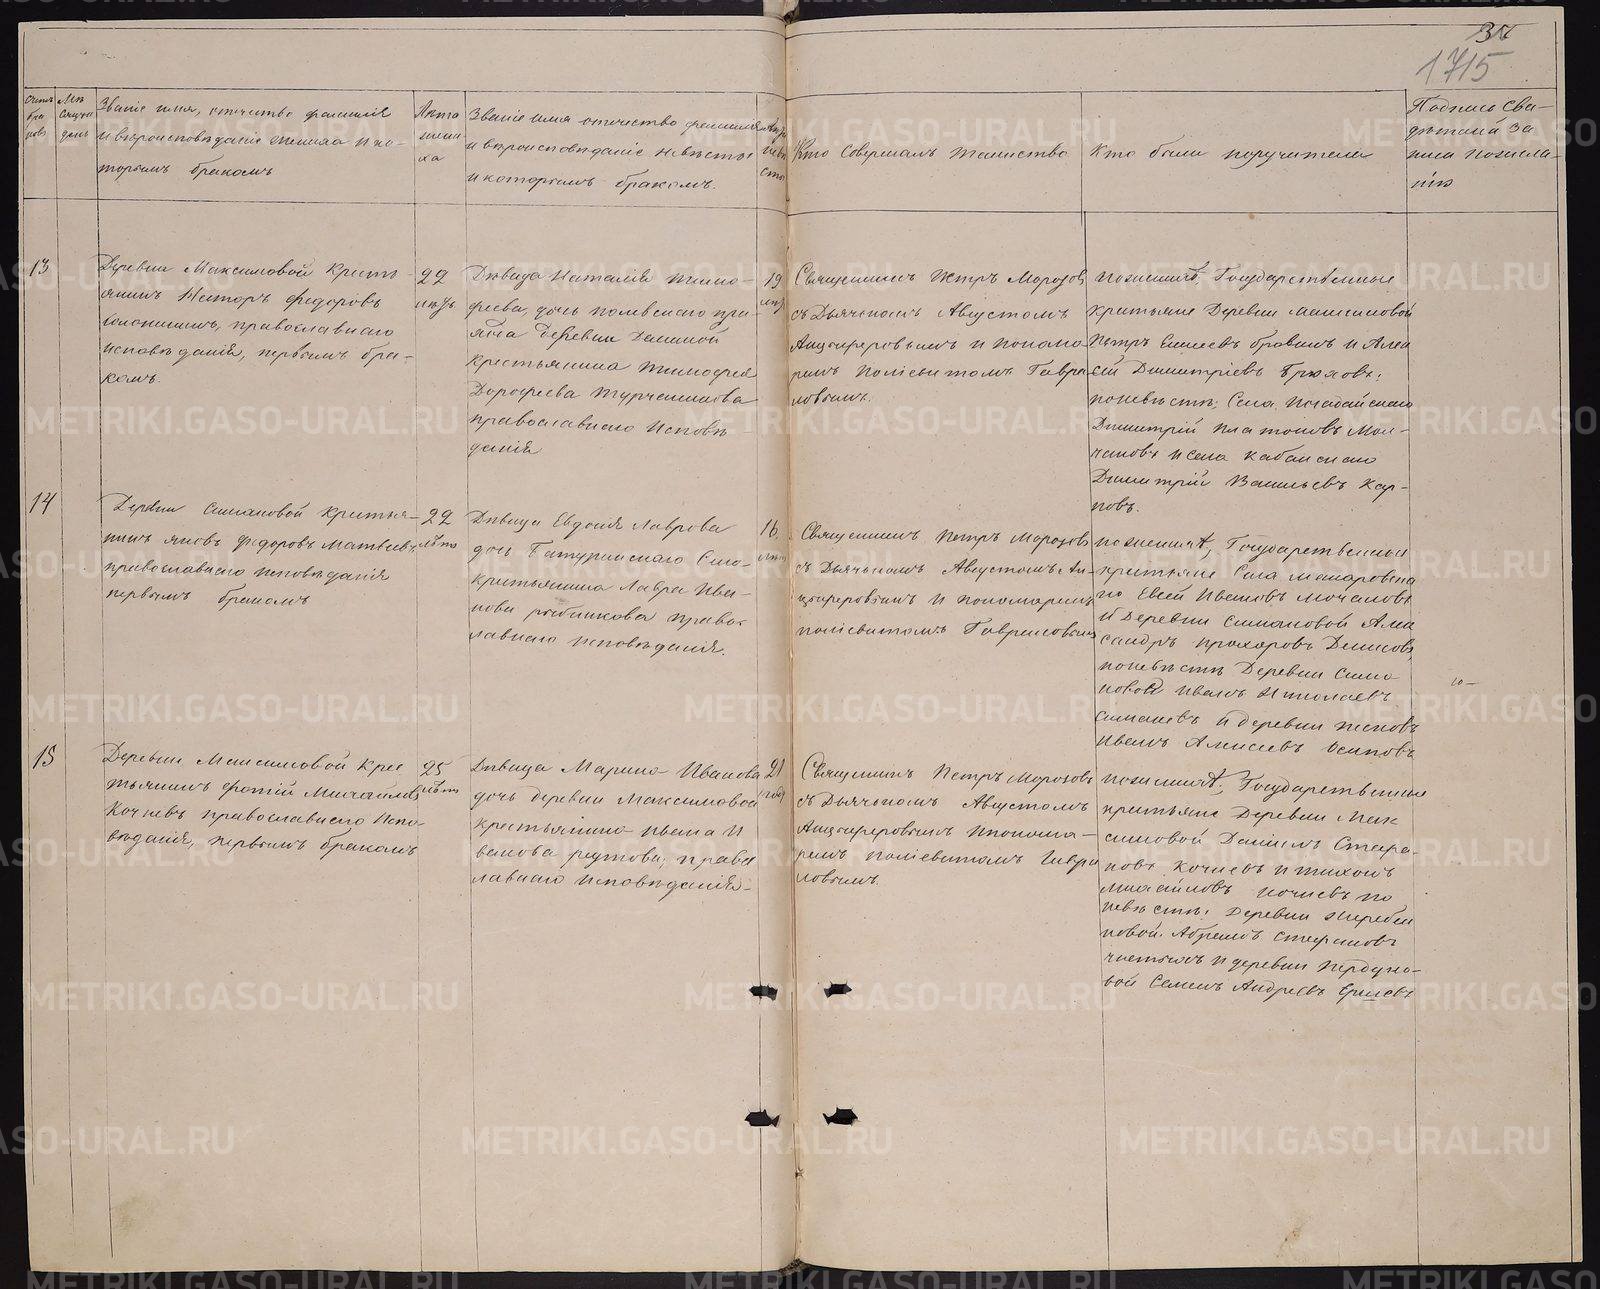 37
1715
Счетъ бра ковъ
Мѣ сяцъ и день
Званіе имя, отчество фамилія
и вѣроисповѣданіе жениха и ко-
торымъ бракомъ
Лѣта жени ха
Званіе имя отчество фамилія
и вѣроисповѣданіе невѣсты
и которымъ бракомъ.
Лѣта невѣ сты
Кто совершалъ таинство
Кто были поручители
Подпись сви-
дѣтелей за
писи по желa-
нію
13
Деревни Максимовой кресть-
янинъ Нестеръ Федоровъ
православнаго
исповѣданія, первымъ бра-
комъ.
22
Дѣвица Наталія Тимо-
феева, дочь
деревни
крестьянина Тимофея
Дорофеева Турчанинова
православнаго исповѣ-
данія
19
Священникъ Петръ Морозовъ
съ Дьячкомъ Августомъ
Анциферовымъ и понома-
ремъ Поліевктомъ Гаври
ловымъ.
по женихѣ, Государственные
крестьяне Деревни Максимовой
Петръ и Алек
сій Димитріевъ
по невѣстѣ, Села
Димитрій Платоновъ Мол-
чановъ и села Кабанскаго
Димитрій Васильевъ Кар-
повъ.
14
Деревни Симановой крестья-
нинъ Яковъ Федоровъ Матвѣевъ,
православнаго исповѣданія
первымъ бракомъ
22
лѣта
Дѣвица Евдокія Лаврова
дочь Батуринскаго Села
крестьянина Лавра Ива-
нова Рыбникова правос
лавнаго исповѣданія.
16
Священникъ Петръ Морозовъ
съ Дьячкомъ Августомъ Ан-
циферовымъ и пономаремъ
Поліевктомъ Гавриловымъ
по женихѣ, Государственные
крестьяне Села Макаровска
го Евсей Ивановъ Мочаловъ
и Деревни Симановой Алек
сандръ Прохоровъ Денисовъ,
по невѣстѣ Деревни Сима
новой Иванъ Николаевъ
Симановъ и деревни
Иванъ Алексѣевъ Осиповъ
15
Деревни Максимовой крес
тьянинъ Фотій Михайловъ
Кочневъ православнаго испо-
вѣданія, первымъ бракомъ
25
лѣтъ
Дѣвица Марина Иванова
дочь деревни Максимовой
крестьянина Ивана И
ванова Реутова, правос
лавнаго исповѣданія.
21
годъ
Священникъ Петръ Морозовъ
съ Дьячкомъ Августомъ
Анциферовымъ и понома-
ремъ Поліевктомъ Гаври
ловымъ.
по женихѣ, Государственные
крестьяне Деревни Мак
симовой Даніилъ Стефа-
новъ Кочневъ и Тихонъ
Михайловъ Кочневъ по
невѣстѣ: Деревни Жеребен
ковой Абрамъ Стефановъ
и деревни Пердуно-
вой Семенъ Андреевъ Ершевъ
METRIKI.GASO-URAL.RU